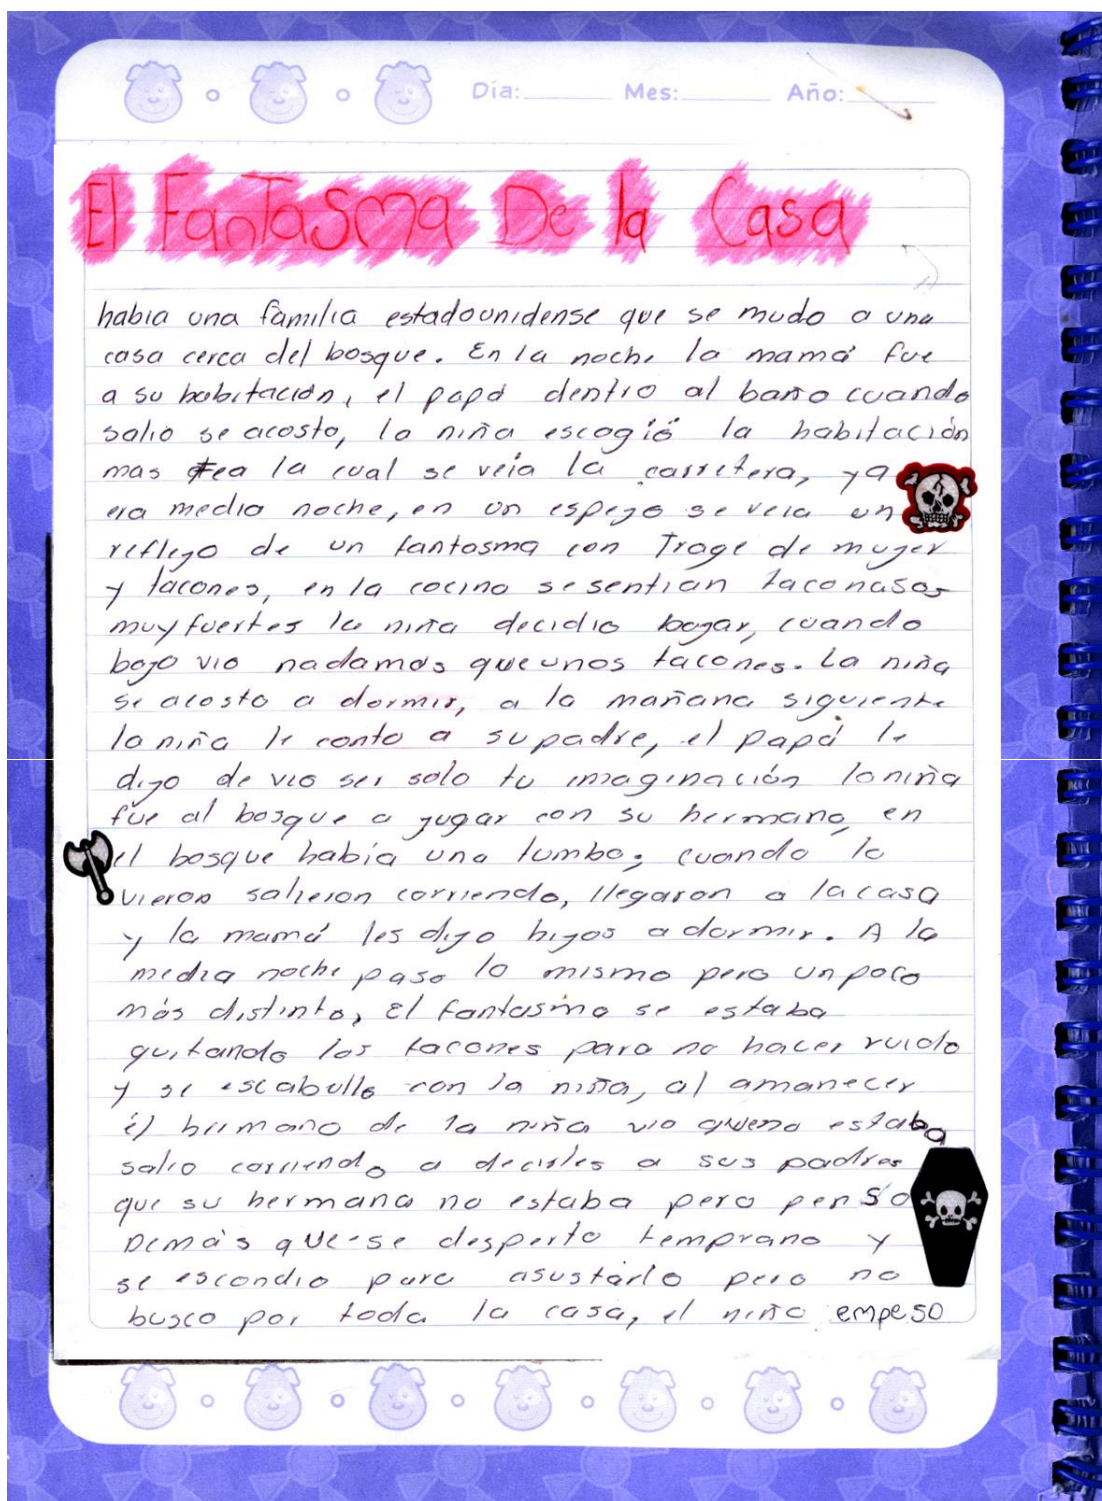 Día: Mes: Año:
El FanTasma De la Casa
habia una familia estadounidense que se mudo a una
casa cerca del bosque. En la noche la mamá fue
a su habitación, el papá dentro al baño cuando
salio se acosto, la niña escogió la habitación
mas fea la cual se veía la carretera, ya
era media noche, en un espejo se veia un
reflejo de un fantasma con Trage de muger
y tacones, en la cocina se sentian taconasos
muy fuertes la niña decidio bagar, cuando
bajo vio nadamas que unos tacones. La niña
se acosto a dormir, a la mañana siguiente
la niña le conto a su padre, el papá le
digo de vio ser solo tu imaginación la niña
fue al bosque a jugar con su hermano, en
el bosque había una tumba, cuando la
vieron salieron corriendo, llegaron a la casa
y la mamá les digo higos a dormir. A la
media noche paso lo mismo pero un poco
más distinto, El fantasma se estaba
quitando los tacones para no hacer ruido
y se escabulle con la niña, al amanecer
él hermano de la niña vio queno estaba
salio corriendo a decirles a sus padres
que su hermana no estaba pero penso
Demás que se desperto temprano y
se escondio para asustarlo pero no
busco por toda la casa, el niño empeso